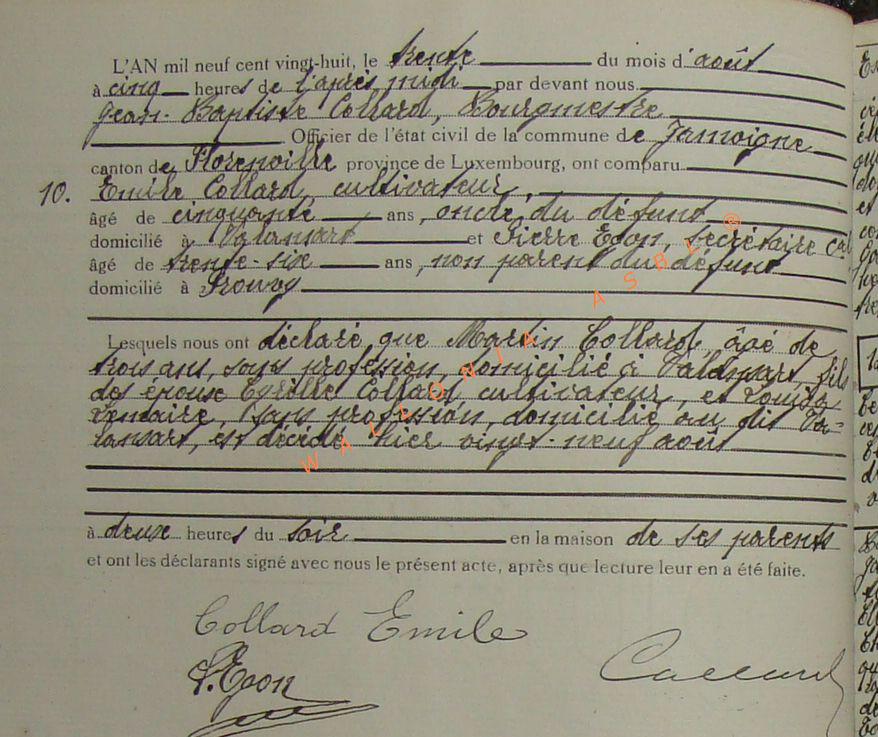 L'AN mil neuf cent vingt-huit, le trente du mois d'août
à cinq heures de l'après midi par devant nous
Jean-Baptiste Collard, Bourgmestre
Officier de l'état civil de la commune de Jamoigne
canton de Florenville province de Luxembourg, ont comparu
10. Emile Collard, cultivateur,
âgé de cinquante ans, oncle du défunt
domicilié à Valansart et Pierre Egon, secrétaire cal
âgé de trente-six ans, non parent du défunt
domicilié à Prouvy
Lesquels nous ont déclaré que Martin Collard, âgé de
trois ans, sans profession, domicilié à Valansart, fils
des époux Cyrille Collard cultivateur, et Louisa
Lemaire, sans profession, domicilié au dit Va-
lansart, est décédé hier vingt-neuf août
à deux heures du soir en la maison de ses parents
et ont les déclarants signé avec nous le présent acte, après que lecture leur en a été faite.
Collard Emile
P. Egon
Collard
WALLONIA ASBL ®